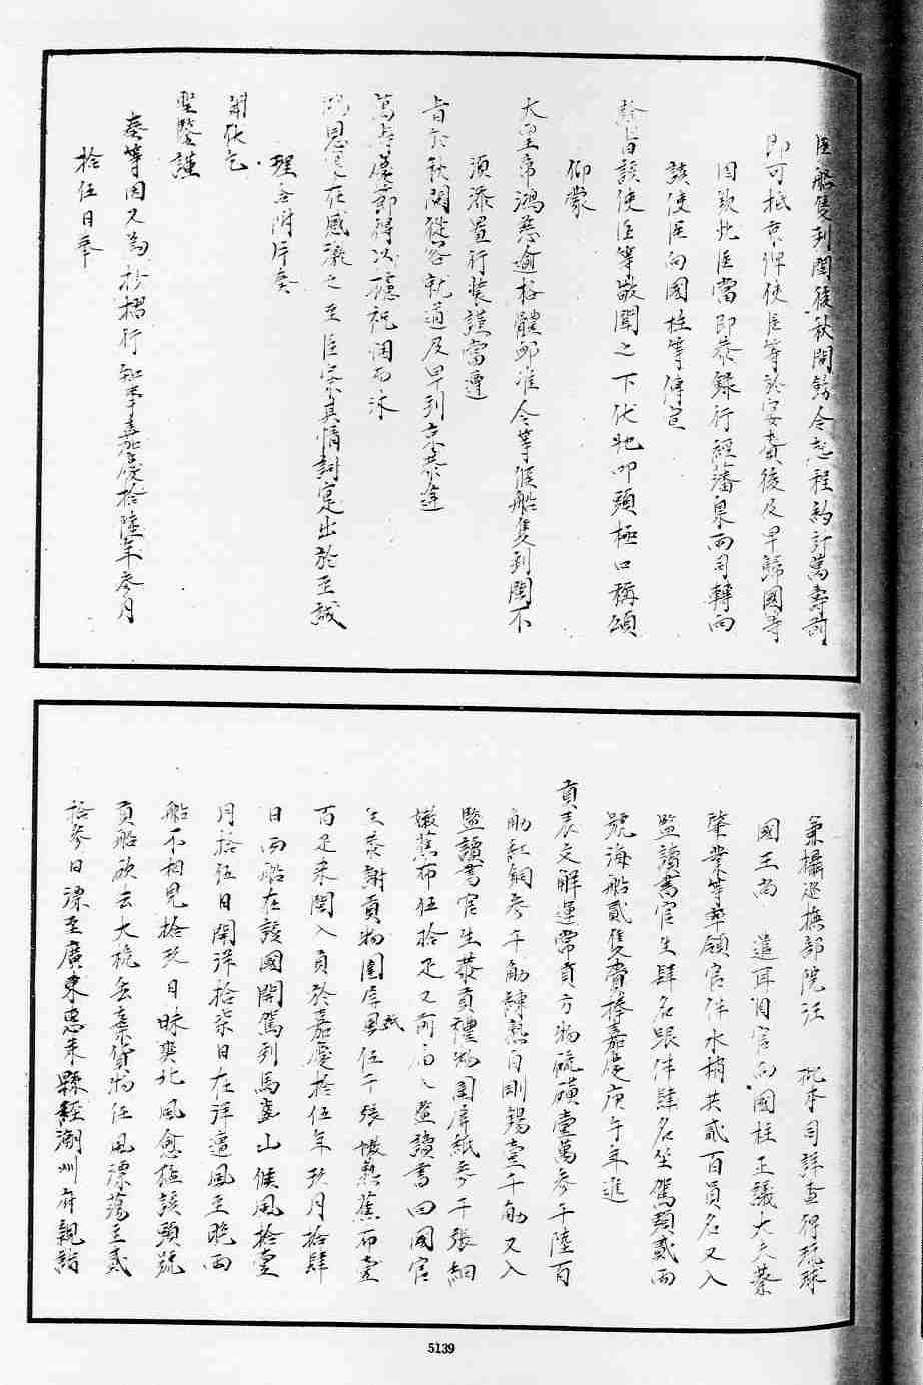 臣船隻到閩後秋間飭令起程約訂萬壽前
即可抵京俾使臣等於宴賚後及早歸國等
因欽此臣當即恭錄行經藩臬兩司轉向
該使臣向國柱等傳宣
諭旨該使臣等敬聞之下伏地叩頭極口稱頌
仰蒙
大皇帝鴻慈逾格體卹准令等候船隻到閩不
須添置行裝謹當遵
旨於秋間從容就道及早到京恭逢
萬壽
鴻恩
理合附片奏
聞伏乞
聖鑒謹
奏等因又為抄摺行知事嘉慶拾陸年參月
拾伍日奉
兼攝巡撫部院汪 批本司詳查得琉球
國王尚 遣耳目官向國柱正議大夫蔡
肇業等率領官伴水梢共貳百員名又入
監讀書官生肆名跟伴肆名坐駕頭貳兩
號海船貳隻賚捧嘉慶庚午年進
貢表文解運常貢方物硫磺壹萬參千陸百
觔紅銅參千觔鍊熟白剛錫壹千觔又入
監讀書官生恭貢禮物圍屏紙參千張細
嫩蕉布伍拾疋又前屆入監讀書回國官
生恭謝貢物圍屏紙伍千張嫩熟蕉布壹
百疋來閩入貢於嘉慶拾伍年玖月拾肆
日兩船在該國開駕到馬齒山候風拾壹
月拾伍日開洋拾柒日在洋遭風至晚兩
船不相見拾玖日昧爽北風愈猛該頭號
貢船砍去大桅丟棄貨物任風漂蕩至貳
拾參日漂至廣東惠來縣經潮州府親詣
5139